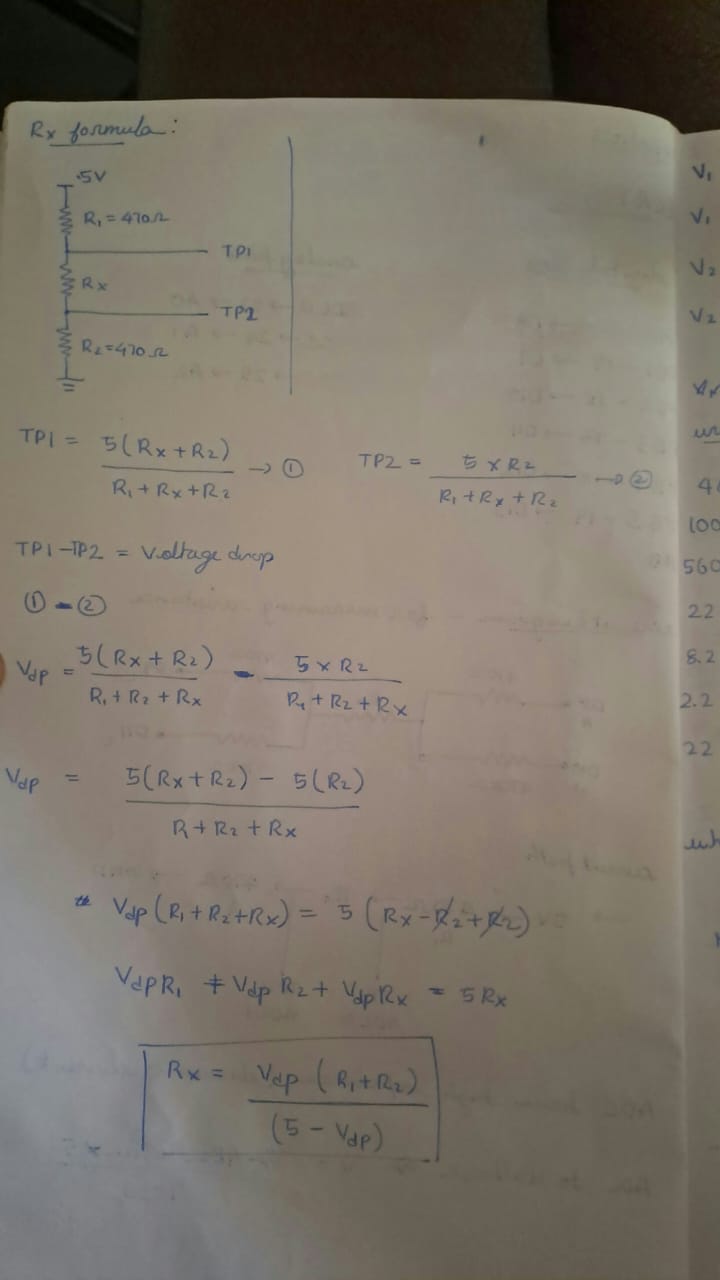 Rx formula:
5V
R₁ = 470Ω
TP1
Rx
TP2
R₂=470Ω
TP1 = 5(Rx + R₂) / R₁ + Rx + R₂ → ①
TP2 = 5 × R₂ / R₁ + Rx + R₂ → ②
TP1 - TP2 = Voltage drop
① - ②
Vdp = 5(Rx + R₂) / R₁ + R₂ + Rx - 5 × R₂ / R₁ + R₂ + Rx
Vdp = 5(Rx + R₂) - 5(R₂) / R + R₂ + Rx
Vdp (R₁ + R₂ + Rx) = 5 (Rx - R₂ + R₂)
VdpR₁ + Vdp R₂ + Vdp Rx = 5 Rx
Rx = Vdp (R₁ + R₂) / (5 - Vdp)
V₁
V₁
V₂
V₂
100
560
22
8.2
2.2
22